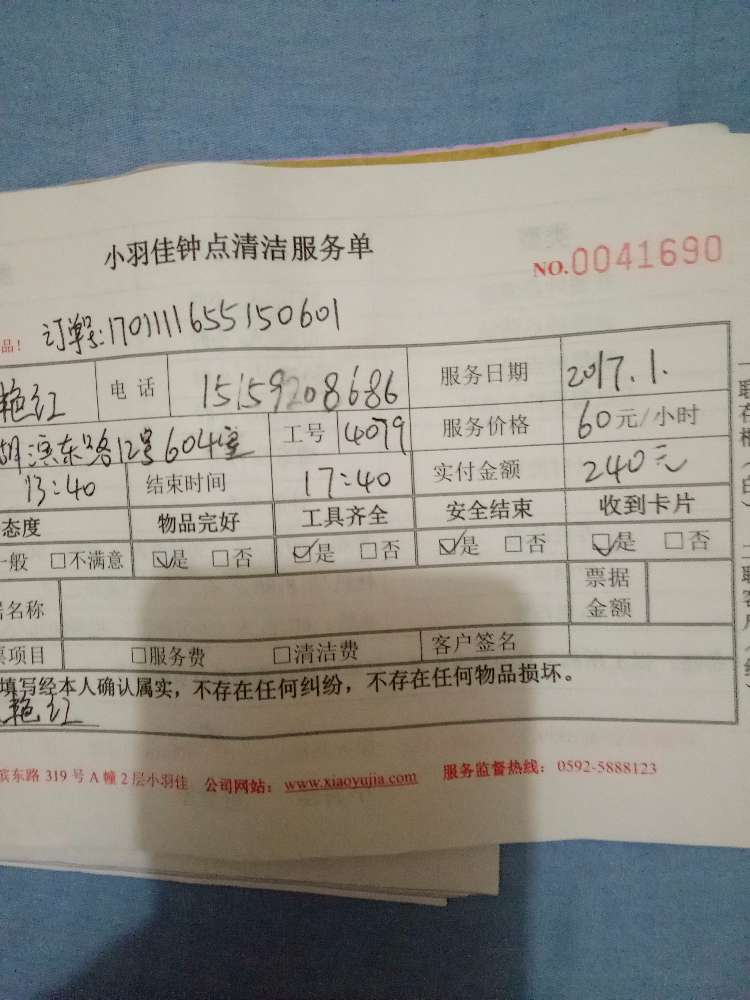 小羽佳钟点清洁服务单
NO.0041690
品！ 订单号:1701111655150601
艳红 电话 15159208686 服务日期 2017.1.
湖滨东路12号604室 工号 4079 服务价格 60元/小时
13:40 结束时间 17:40 实付金额 240元
态度 物品完好 工具齐全 安全结束 收到卡片
一般 □不满意 ☑是 □否 ☑是 □否 ☑是 □否 ☑是 □否
名称 票据金额
项目 □服务费 □清洁费 客户签名
填写经本人确认属实，不存在任何纠纷，不存在任何物品损坏。
艳红
滨东路 319 号 A 幢 2 层小羽佳 公司网站：www.xiaoyujia.com 服务监督热线：0592-5888123